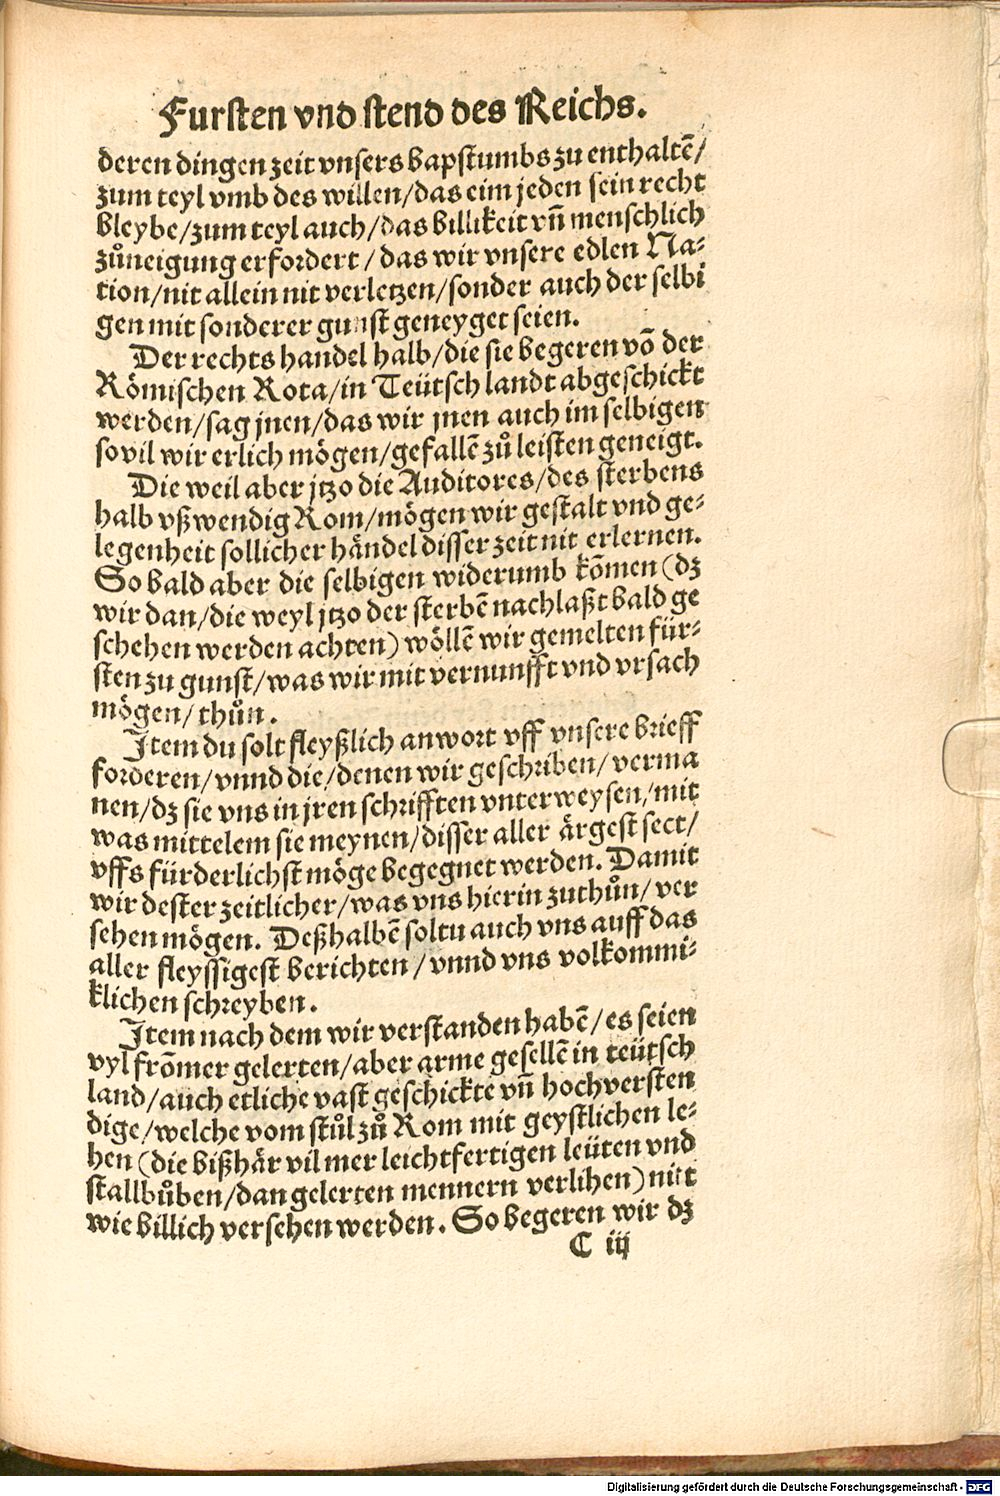 Fursten vnd stend des Reichs.
deren dingen zeit vnsers bapstumbs zu enthaltē/
zum teyl vmb des willen/das eim jeden sein recht
bleybe/zum teyl auch/das billikeit vn̄ menschlich
zůneigung erfordert/das wir vnsere edlen Na⸗
tion/nit allein nit verletzen/sonder auch der selbi
gen mit sonderer gunst geneyget seien.
Der rechts handel halb/die sie begeren vō der
Römischen Rota/in Teütsch landt abgeschickt
werden/sag jnen/das wir jnen auch im selbigen
sovil wir erlich mögen/gefallē zů leisten geneigt.
Die weil aber jtzo die Auditores/des sterbens
halb vßwendig Rom/mögen wir gestalt vnd ge⸗
legenheit sollicher händel disser zeit nit erlernen.
So bald aber die selbigen widerumb kōmen (dz
wir dan/die weyl jtzo der sterbē nachlaßt bald ge
schehen werden achten) wöllē wir gemelten für⸗
sten zu gunst/was wir mit vernunfft vnd vrsach
mögen/thůn.
Item du solt fleyßlich anwort vff vnsere brieff
forderen/vnnd die/denen wir geschriben/verma
nen/dz sie vns in jren schrifften vnterweysen/mit
was mittelem sie meynen/disser aller ärgest sect/
vffs fürderlichst möge begegnet werden. Damit
wir dester zeitlicher/was vns hierin zuthůn/ver
sehen mögen. Deßhalbē soltu auch vns auff das
aller fleyssigest berichten/vnnd vns volkommi⸗
klichen schreyben.
Item nach dem wir verstanden habē/es seien
vyl frōmer gelerten/aber arme gesellē in teütsch
land/auch etliche vast geschickte vn̄ hochversten
dige/welche vom stůl zů Rom mit geystlichen le⸗
hen (die bißhär vil mer leichtfertigen leüten vnd
stallbůben/dan gelerten mennern verlihen) nitt
wie billich versehen werden. So begeren wir dz
C iij
Digitalisierung gefördert durch die Deutsche Forschungsgemeinschaft - DFG